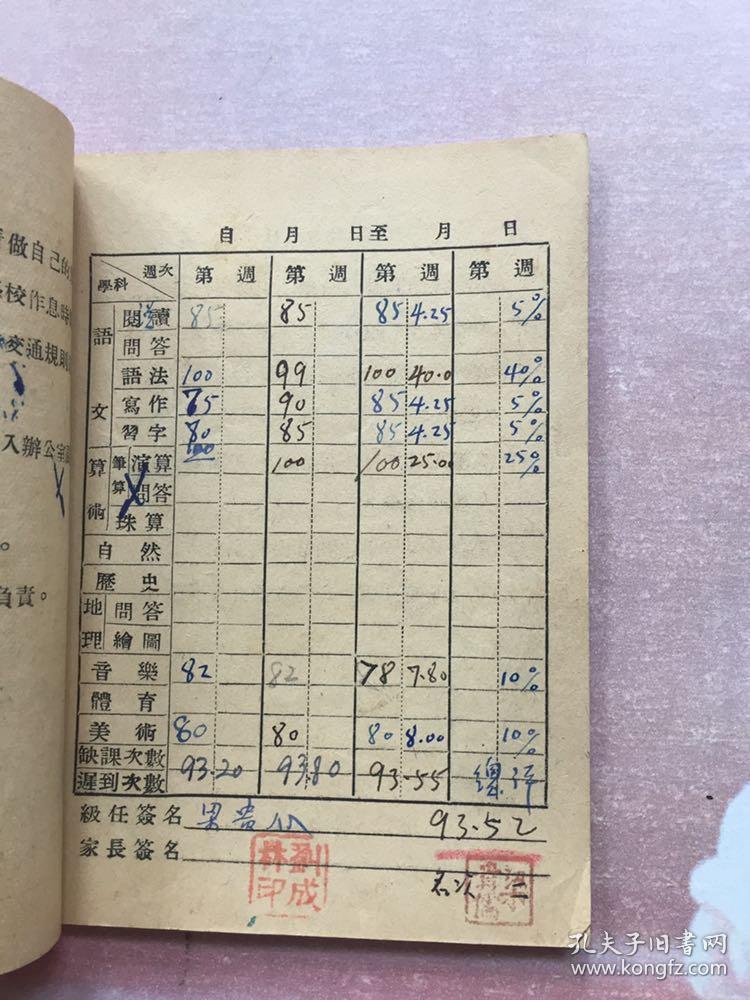 做自己的
校作息時
交通規則
入辦公室
。
負責。
自 月 日至 月 日
週次 學科 第 週 第 週 第 週 第 週
語文 閱讀 85 85 85 4.25 5%
問答
語法 100 99 100 40.0 40%
寫作 75 90 85 4.25 5%
習字 80 85 85 4.25 5%
算術 筆算 演算 100 100 100 25.00 25%
問答
珠算
自然
歷史
地理 問答
繪圖
音樂 82 82 78 7.80 10%
體育
美術 80 80 80 8.00 10%
缺課次數
遲到次數 93.20 93.80 93.55 總評
級任簽名 93.52
家長簽名
劉成林印
名次 二
孔夫子旧书网
www.kongfz.com